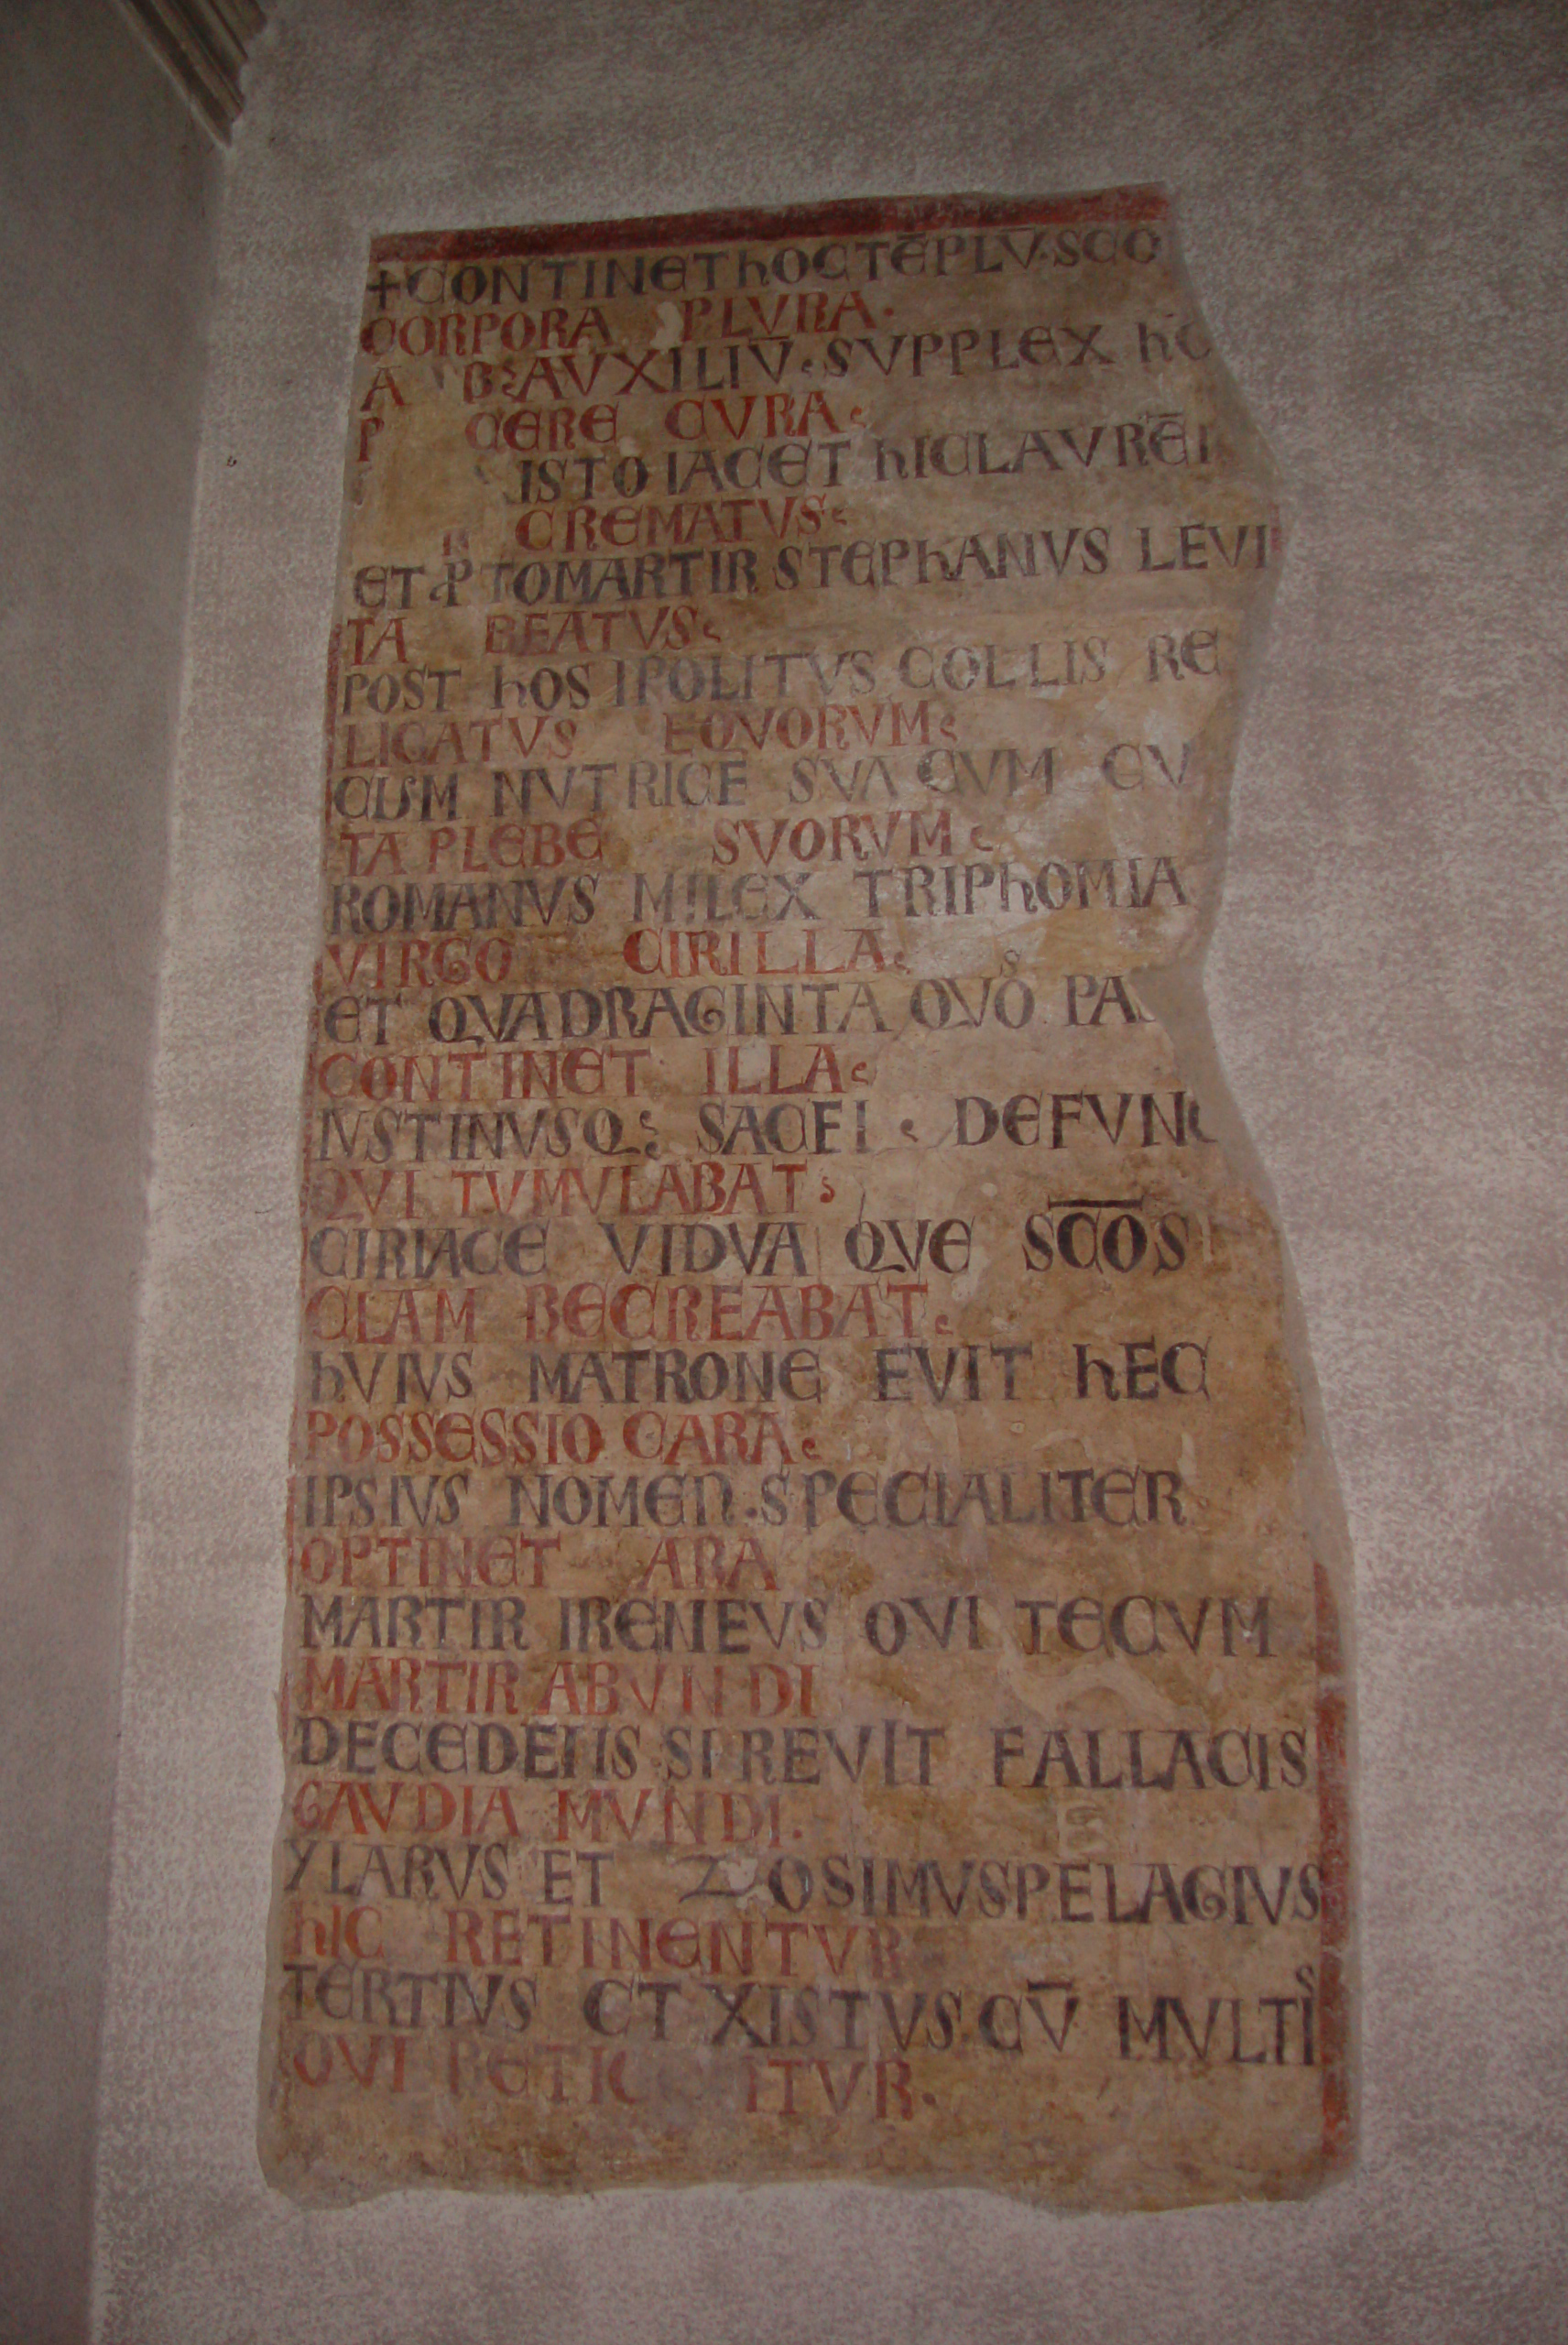 +CONTINET hOC TĒPLV̄·SCO
CORPORA PLVRA·
AVXILIV̄·SVPPLEX
CERE CVRA
ISTO IACET hIC LAVRĒ
CREMATVS
ET TOMARTIR STEPhANVS LEVI
TA BEATVS
POST hOS IPOLITVS COLLIS RE
LIGATVS EQVORVM
CVM NVTRICE SVA CVM CV
TA PLEBE SVORVM
ROMANVS MILEX TRIPhOMIA
VIRGO CIRILLA
ET QVADRAGINTA QVOS PAS
CONTINET ILLA
IVSTINVSQ SACE DEFVNC
QVI TVMVLABAT
CIRIACE VIDVA QVE SC̄ŌS
CLAM RECREABAT
hVIVS MATRONE FVIT hEC
POSSESSIO CARA
IPSIVS NOMEN·SPECIALITER
OPTINET ARA
MARTIR IRENEVS QVI TECVM
MARTIR ABVNDI
DECEDENS SPREVIT FALLACIS
GAVDIA MVNDI·
YLARVS ET ZOSIMVS PELAGIVS
hIC RETINENTVR
TERTIVS ET XISTVS CV̄ MVLTIS
QVI